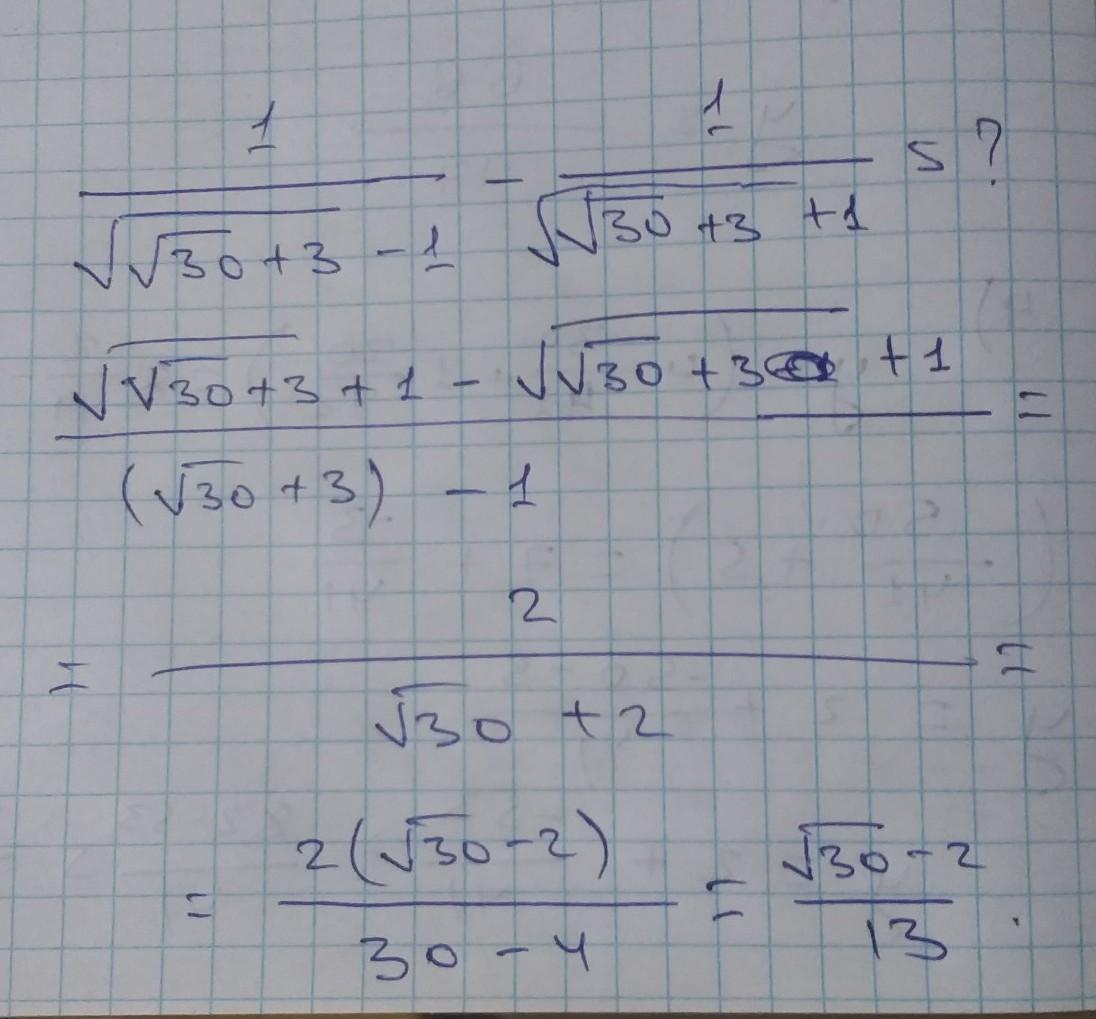 1/(√(√30 + 3) - 1) - 1/(√(√30 + 3) + 1) = ?
(√(√30 + 3) + 1 - √(√30 + 3) + 1)/((√30 + 3) - 1) =
= 2/(√30 + 2) =
= 2(√30 - 2)/(30 - 4) = (√30 - 2)/13 .